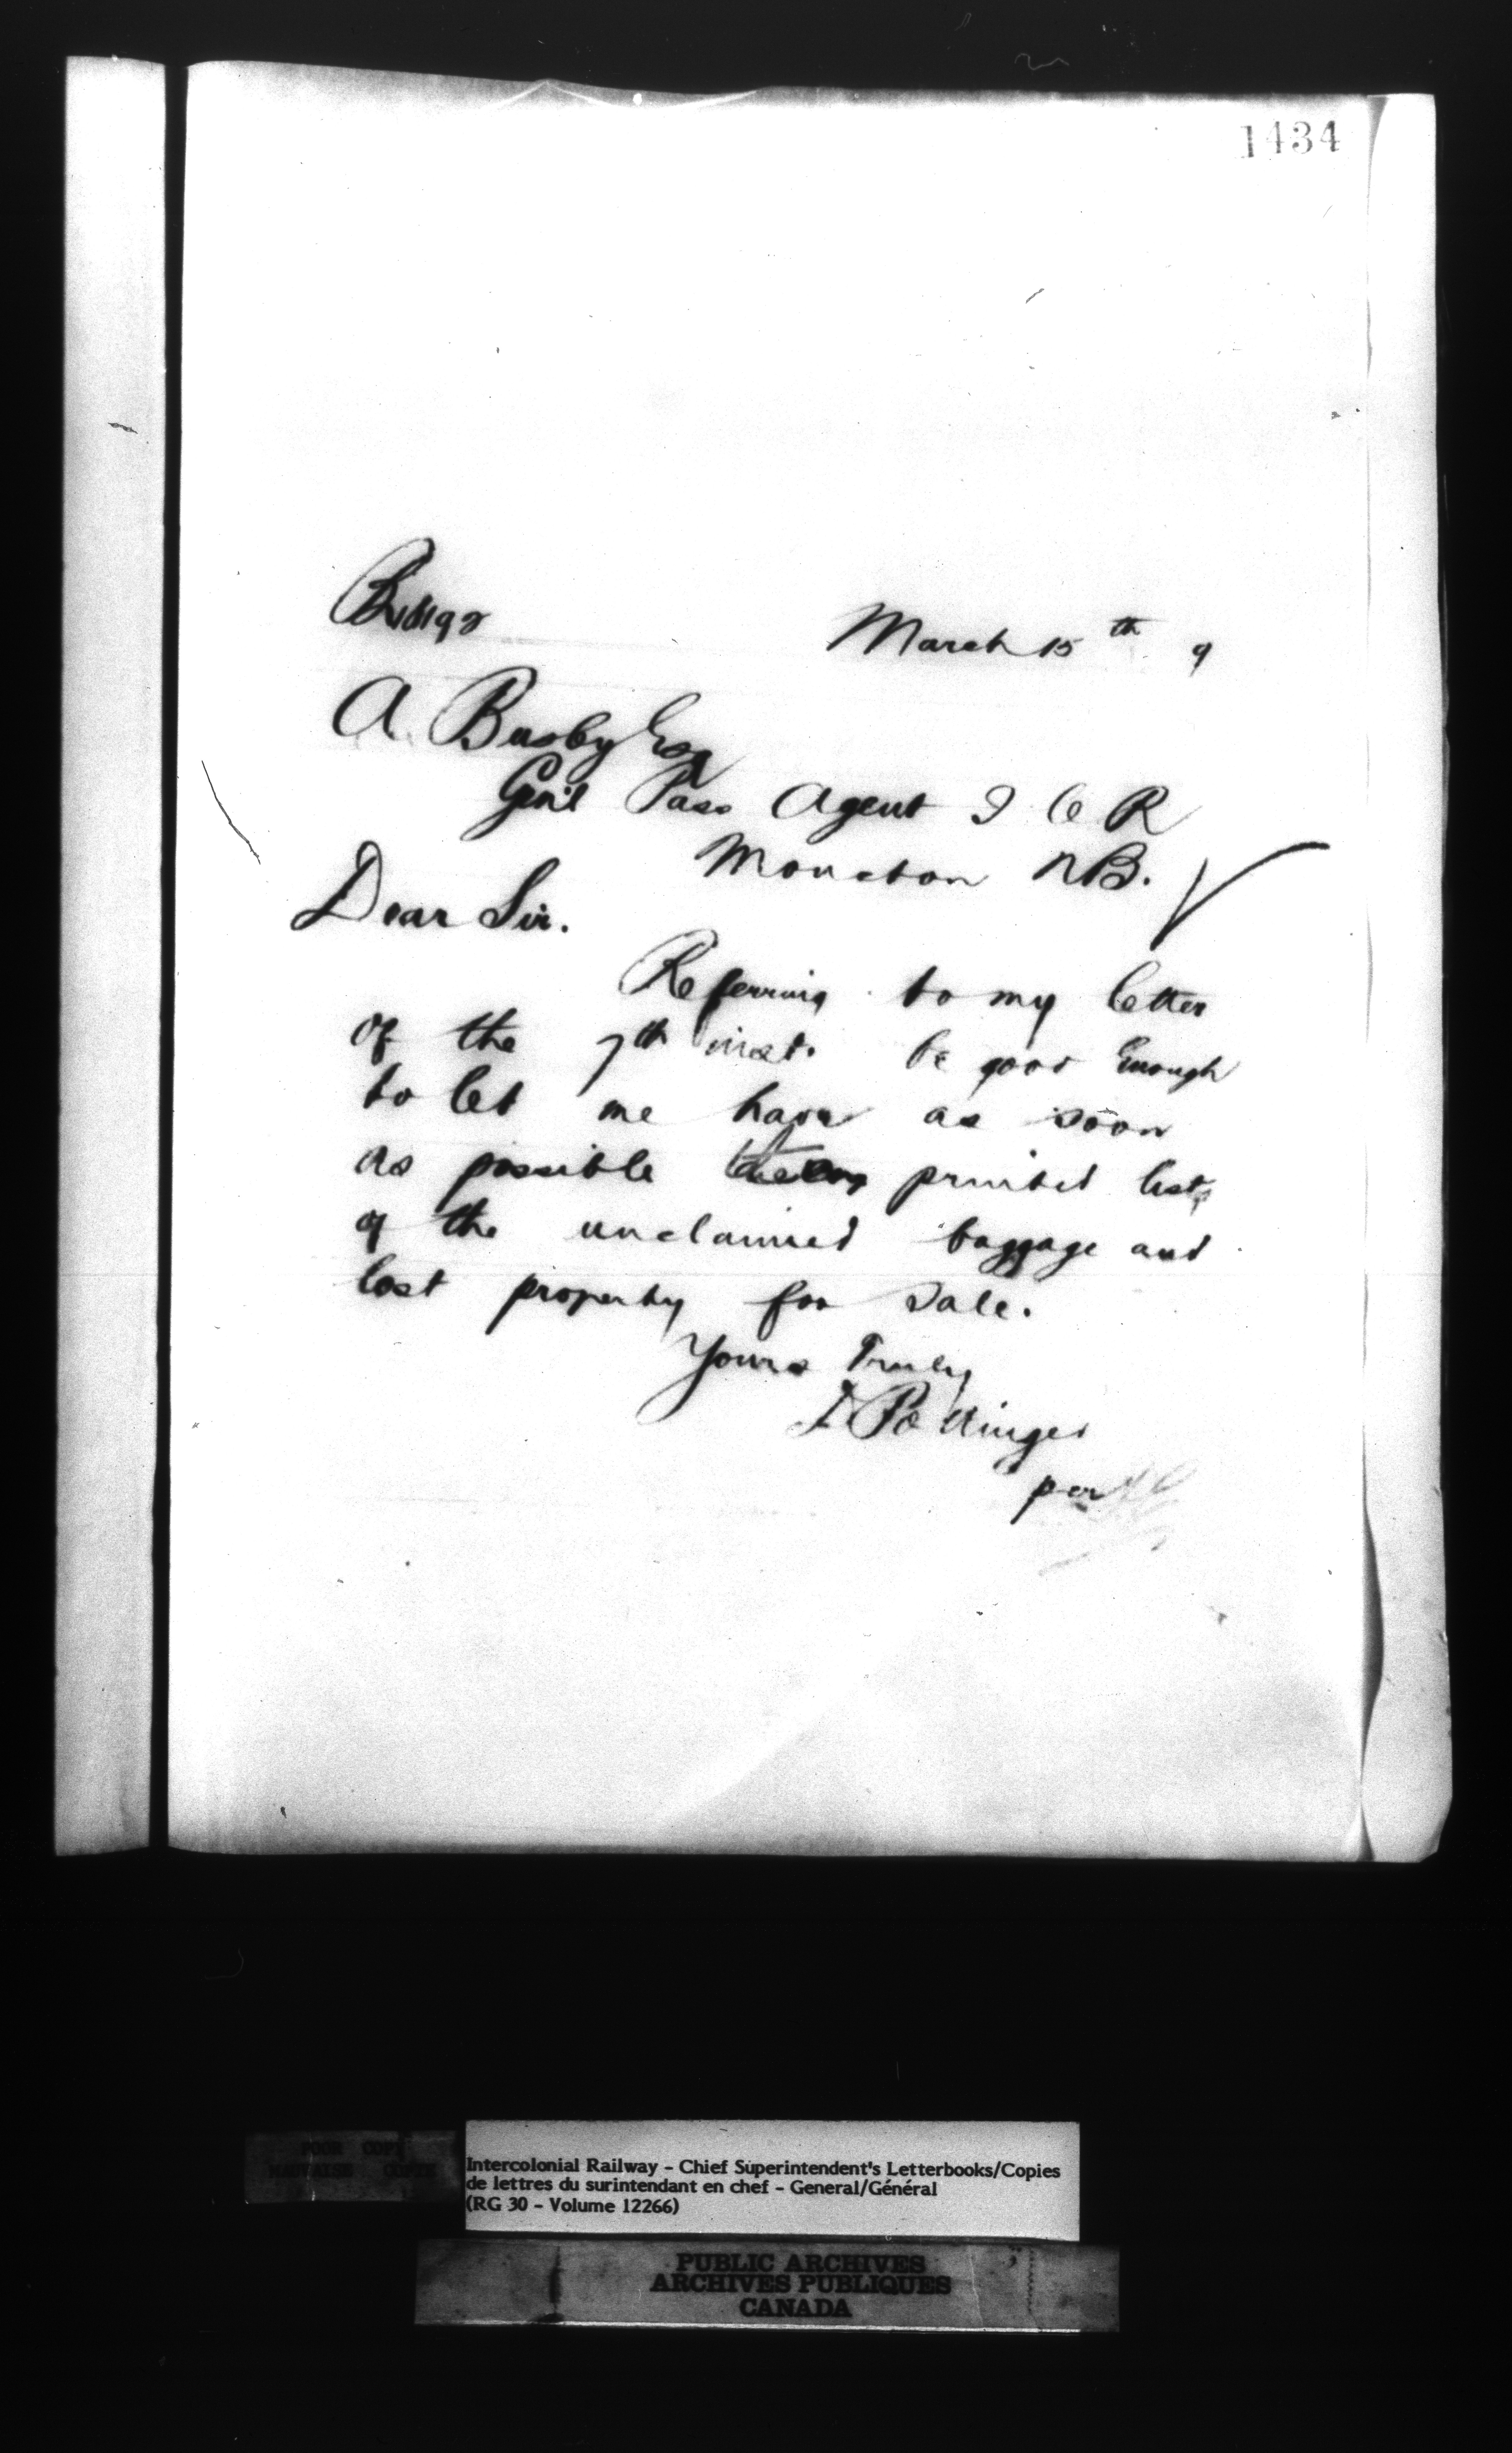 1434
March 15th 9
A. Busby Esq
Gen'l Pass Agent I C R
Moncton NB.
Dear Sir.
Referring to my letter
of the 7th inst. be good enough
to let me have as soon
as possible the printed list
of the unclaimed baggage and
lost property for sale.
Yours Truly
D Pottinger
per
POOR COPY
MAUVAISE COPIE
Intercolonial Railway - Chief Superintendent's Letterbooks/Copies
de lettres du surintendant en chef - General/Général
(RG 30 - Volume 12266)
PUBLIC ARCHIVES
ARCHIVES PUBLIQUES
CANADA